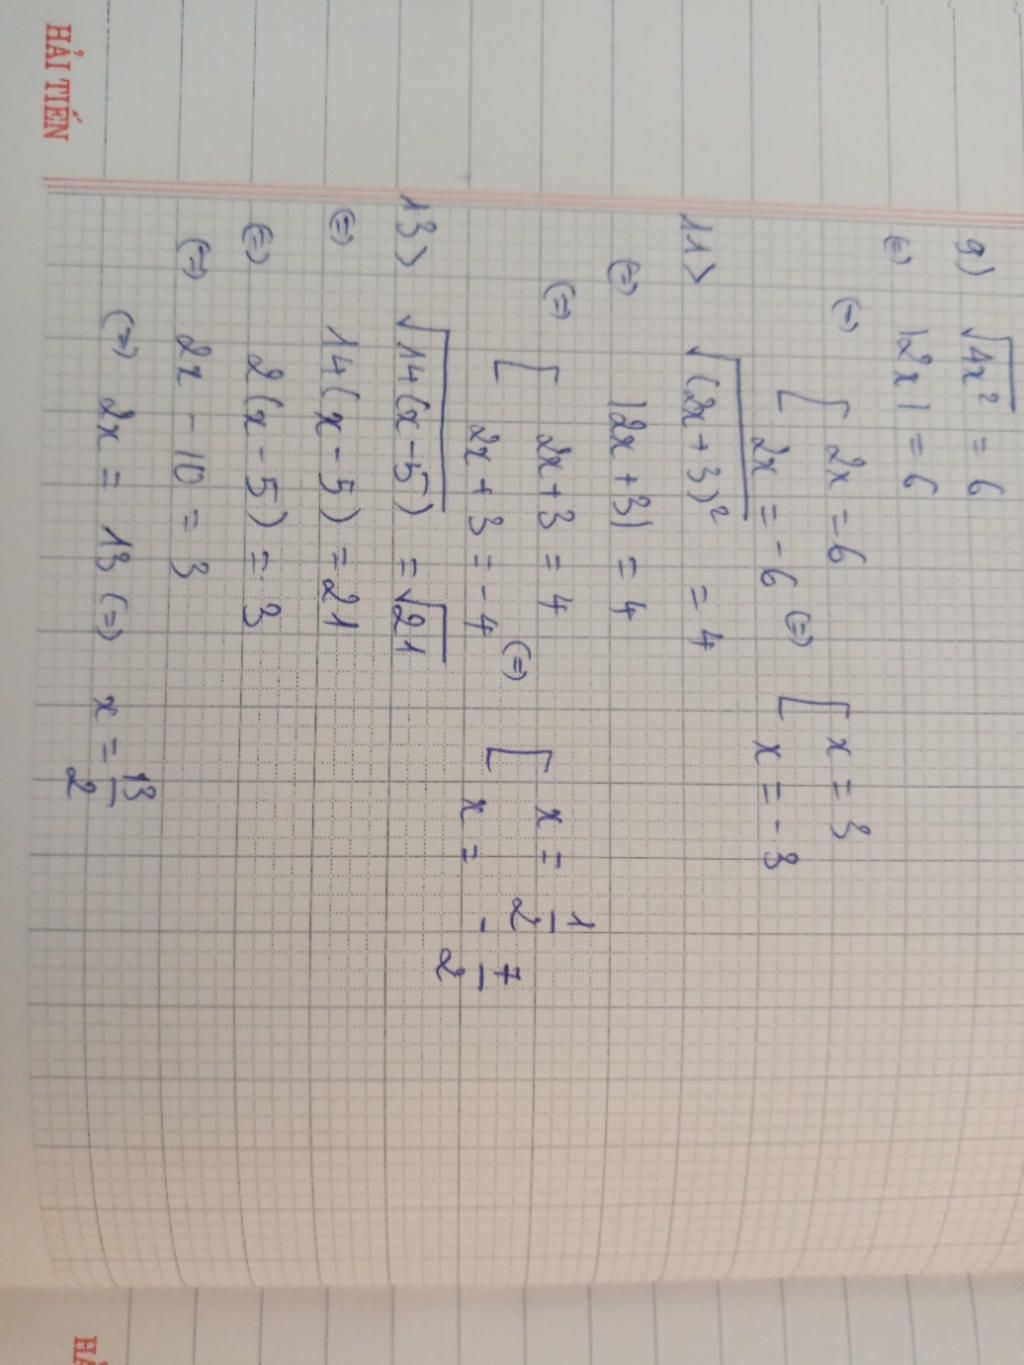 HẢI TIẾN
9) √4x² = 6
(=) |2x| = 6
(=) [ 2x = 6
2x = -6 (=) [ x = 3
x = -3
11> √(2x+3)² = 4
(=) |2x+3| = 4
(=) [ 2x+3 = 4
2x+3 = -4 (=) [ x = 1/2
x = -7/2
13> √14(x-5) = √21
(=) 14(x-5) = 21
(=) 2(x-5) = 3
(=) 2x - 10 = 3
(=) 2x = 13 (=) x = 13/2